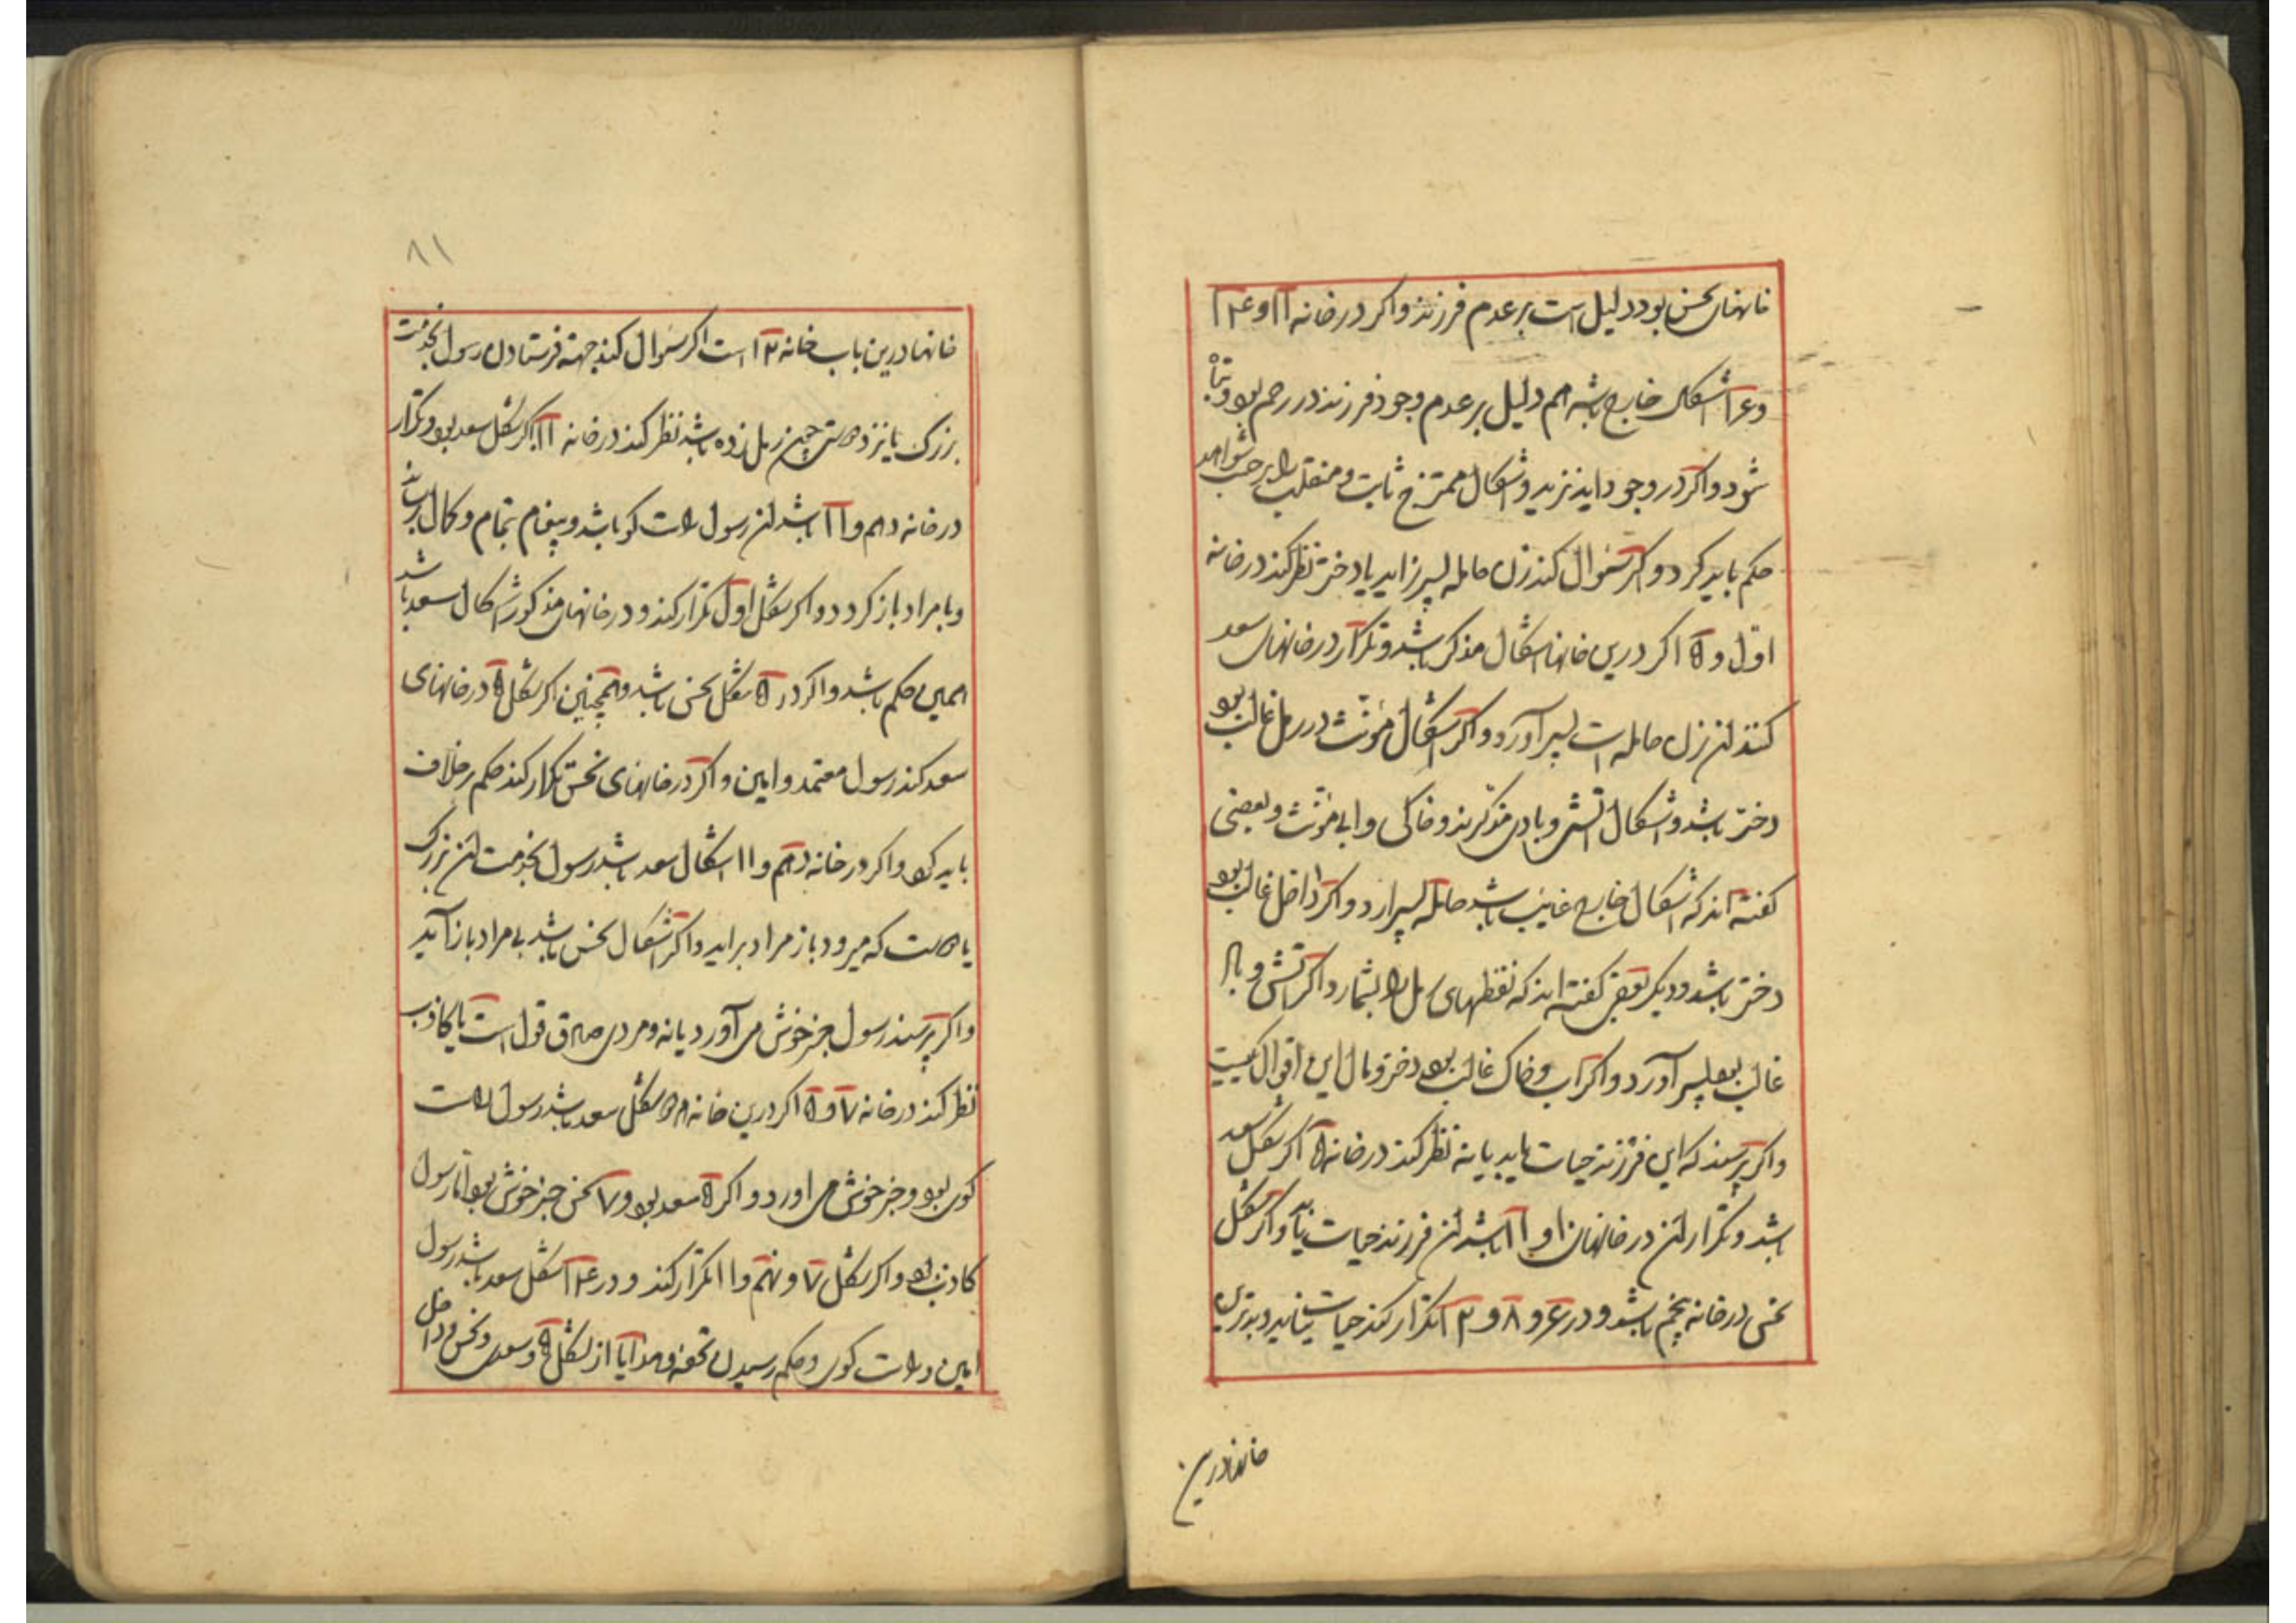 خانهای نحس بود دلیل است بر عدم فرزند و اکر در خانه ۱۱ و ۱۴
و ۱۶ اشکال خارج باشد هم دلیل بر عدم وجود فرزند در رحم بود و تباه
شود و اکر در وجود اید نزید و اشکال ممتزج ثابت و منقلب را بر حسب شواهد
حکم باید کرد و اکر سئوال کند زن حامله پسر زاید یا دختر نظر کند در خانه
اول و ۵ اکر درین خانها اشکال مذکر باشد و تکرار در خانهای سعد
کند ان زن حامله است پسر آورد و اکر اشکال مؤنث در رمل غالب بود
دختر باشد و اشکال اتشی و بادی مذکرند و خاکی و ابی مؤنث و بعضی
کفته اند که اشکال خارج غالب باشد حامله پسر ارد و اکر داخل غالب بود
دختر باشد و دیکر بعضی کفته اند که نقطهای رمل را بشمارد اکر اتش و باد
غالب بود پسر آورد و اکر اب و خاک غالب بود دختر و مال این اقوال یکیست
و اکر پرسند که این فرزند حیات یابد یا نه نظر کند در خانه ۵ اکر شکل سعد
باشد و تکرار ان در خانهای ۱ و ۱۱ باشد ان فرزند حیات یابد و اکر شکل
نحس در خانه پنجم باشد و در ۶ و ۸ و ۱۲ تکرار کند حیات نیابد و بدترین
خانها درین
۸۱
خانها درین باب خانه ۱۲ است اکر سئوال کند جهة فرستادن رسول بخدمت
بزرک یا نزد دوستی چون رمل زده باشد نظر کند در خانه ۱۱ اکر شکل سعد بود و تکرار
در خانه دهم و ۱۱ باشد ان رسول راست کو باشد و پیغام بتمام و کمال برساند
و با مراد باز کردد و اکر شکل اول تکرار کند و در خانهای مذکور اشکال سعد باشد
همین حکم باشد و اکر در ۵ شکل نحس باشد و همچنین اکر شکل ۵ در خانهای
سعد کند رسول معتمد و امین و اکر در خانهای نحس تکرار کند حکم بر خلاف
باید کرد و اکر در خانه دهم و ۱۱ اشکال سعد باشد رسول بخدمت ان بزرک
یا دوست که میرود باز مراد براید و اکر اشکال نحس باشد بی مراد باز آید
و اکر پرسند رسول خبر خوش می آورد یا نه و مردی صادق قول است یا کاذب
نظر کند در خانه ۷ و ۵ اکر درین خانه هر دو شکل سعد باشد رسول راست
کوی بود و خبر خوش می اورد و اکر ۵ سعد بود و ۷ نحس خبر خوش بود اما رسول
کاذب بود و اکر شکل ۷ و نهم و ۱۱ تکرار کند و در ۱۴ شکل سعد باشد رسول
امین و راست کوی و حکم رسیدن تحفه و هدایا از شکل ۵ و سعد و نحس و داخل